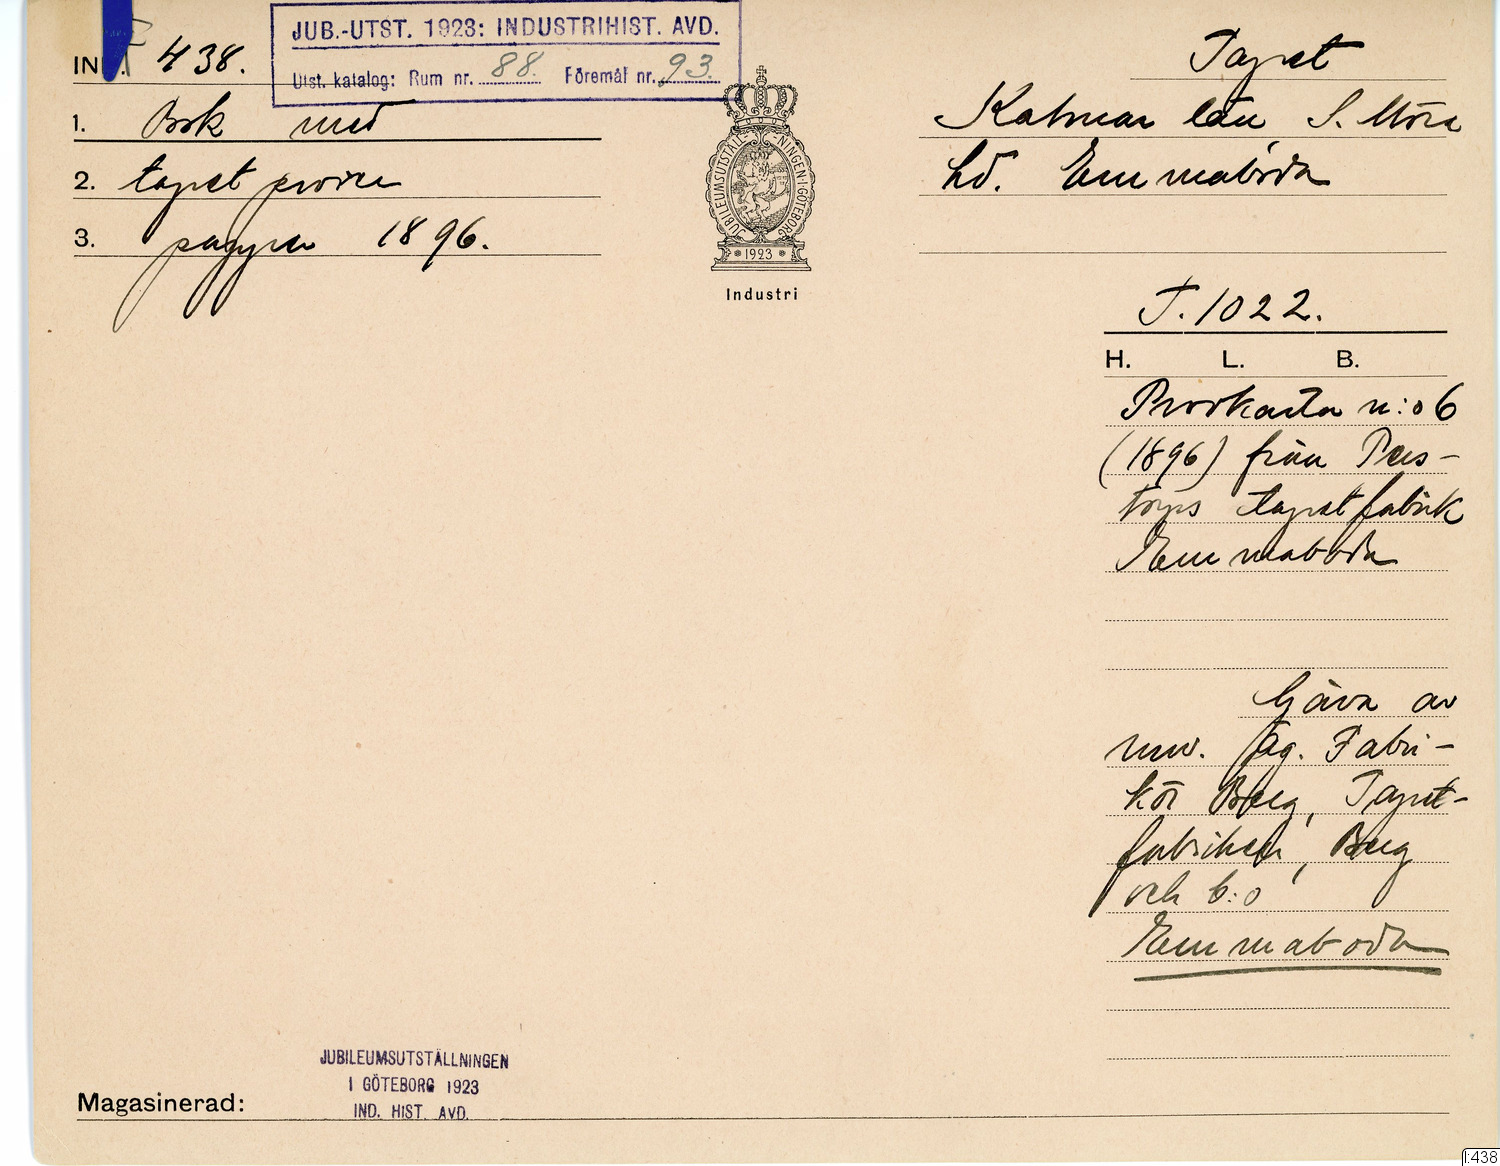 JUB.-UTST. 1923: INDUSTRIHIST. AVD.
Utst. katalog: Rum nr. 88. Föremål nr. 93.
438.
1. Bok med
2. tapet prover
3. papper 1896.
JUBILEUMSUTSTÄLLNINGEN I GÖTEBORG
1923
Industri
Tapet
Kalmar län S. Möre
hd. Emmaboda
T. 1022.
H. L. B.
Provkarta n:o 6
(1896) från Pers-
torps tapetfabrik
Emmaboda
Gåva av
nuv. äg. Fabri-
kör Berg, Tapet-
fabriken, Berg
och C:o
Emmaboda
JUBILEUMSUTSTÄLLNINGEN
I GÖTEBORG 1923
IND. HIST. AVD.
Magasinerad:
I:438